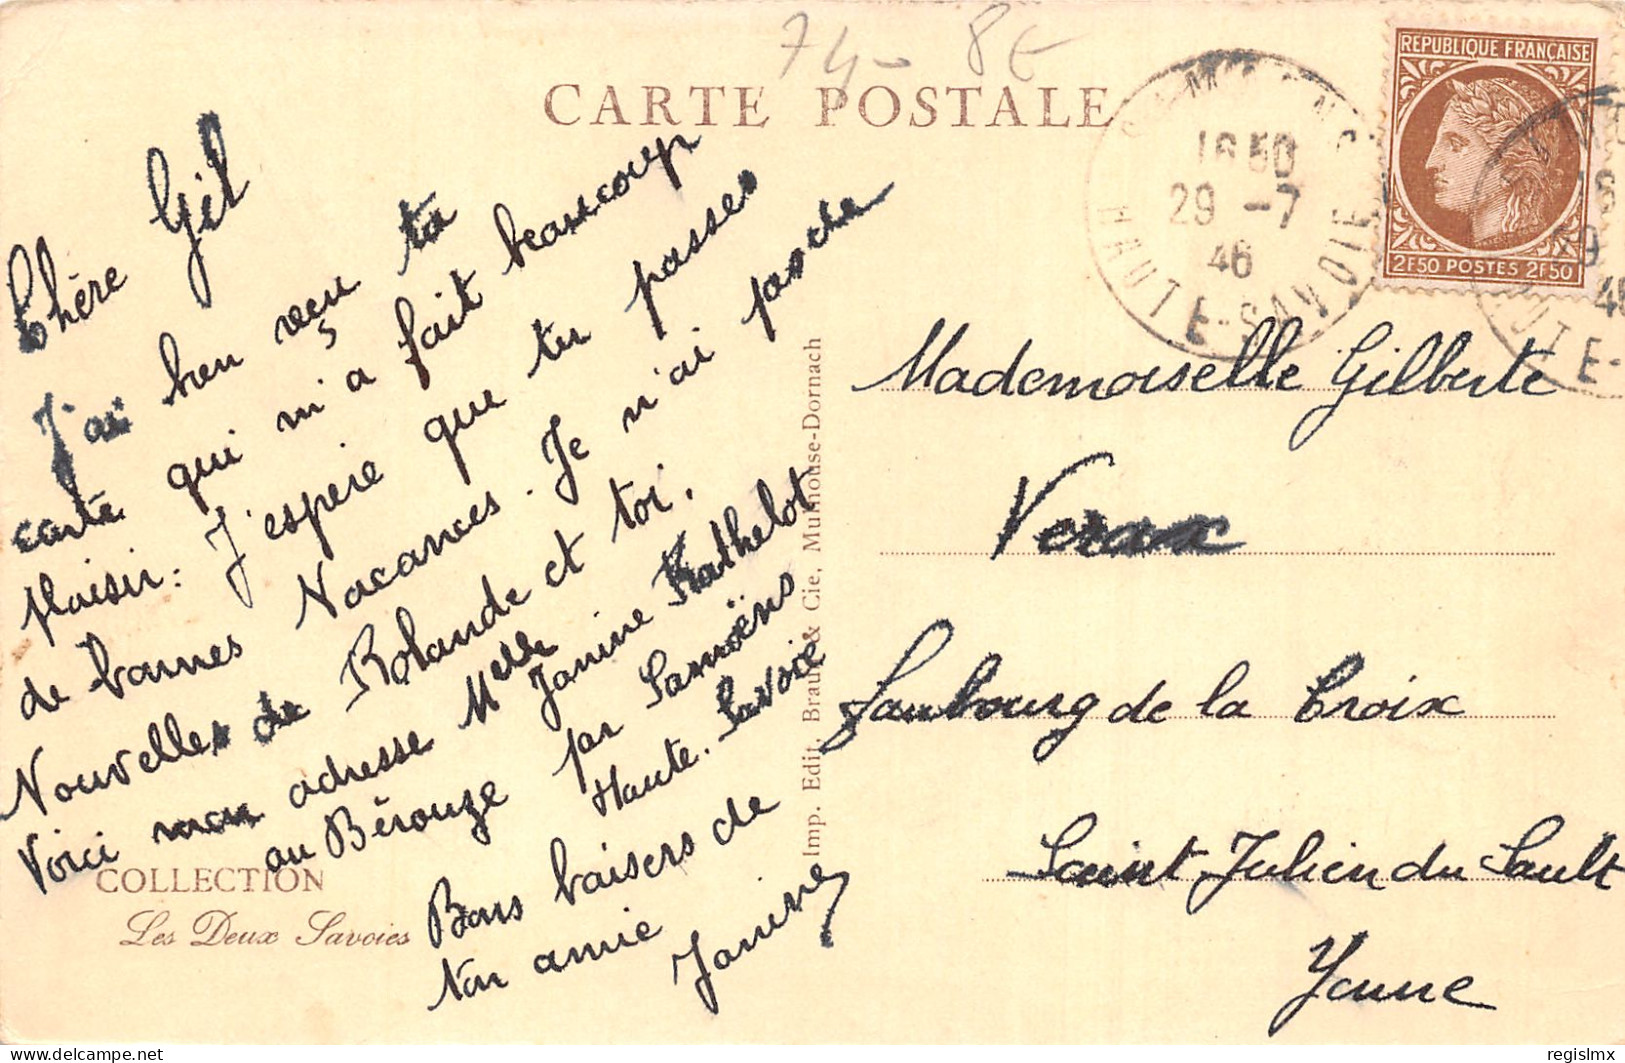 74- 8€
CARTE POSTALE
REPUBLIQUE FRANÇAISE
2F50 POSTES 2F50
16 50
29 -7
46
HAUTE-SAVOIE
Chère Gil
J'ai bien reçu ta
carte qui m'a fait beaucoup
plaisir. J'espère que tu passes
de bonnes Vacances. Je n'ai pas de
Nouvelles de Rolande et toi.
Voici mon adresse Melle Janine Rathelot
au Bérouze par Samoëns
Haute-Savoie
Bons baisers de
ton amie
Janine
COLLECTION
Les Deux Savoies
Imp. Edit. Braun & Cie, Mulhouse-Dornach
Mademoiselle Gilberte
Verax
Faubourg de la Croix
Saint Julien du Sault
Yonne
delcampe.net
regislmx